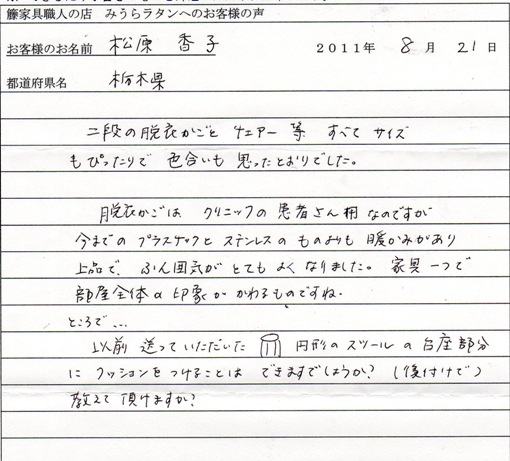 籐家具職人の店 みうらラタンへのお客様の声
お客様のお名前 松原 香子 2011年 8月 21日
都道府県名 栃木県
二段の脱衣かごと チェアー 等 すべて サイズ
もぴったりで 色合いも 思ったとおりでした。
脱衣かごは クリニックの患者さん用なのですが
今までの プラスチックと ステンレスの ものよりも 暖かみがあり
上品で、ふん囲気が とても よく なりました。 家具 一つで
部屋全体の 印象が かわるものですね。
ところで...
以前 送っていただいた 円形のスツールの台座部分
に クッションを つけることは できますでしょうか? (後付けで)
教えて 頂けますか?